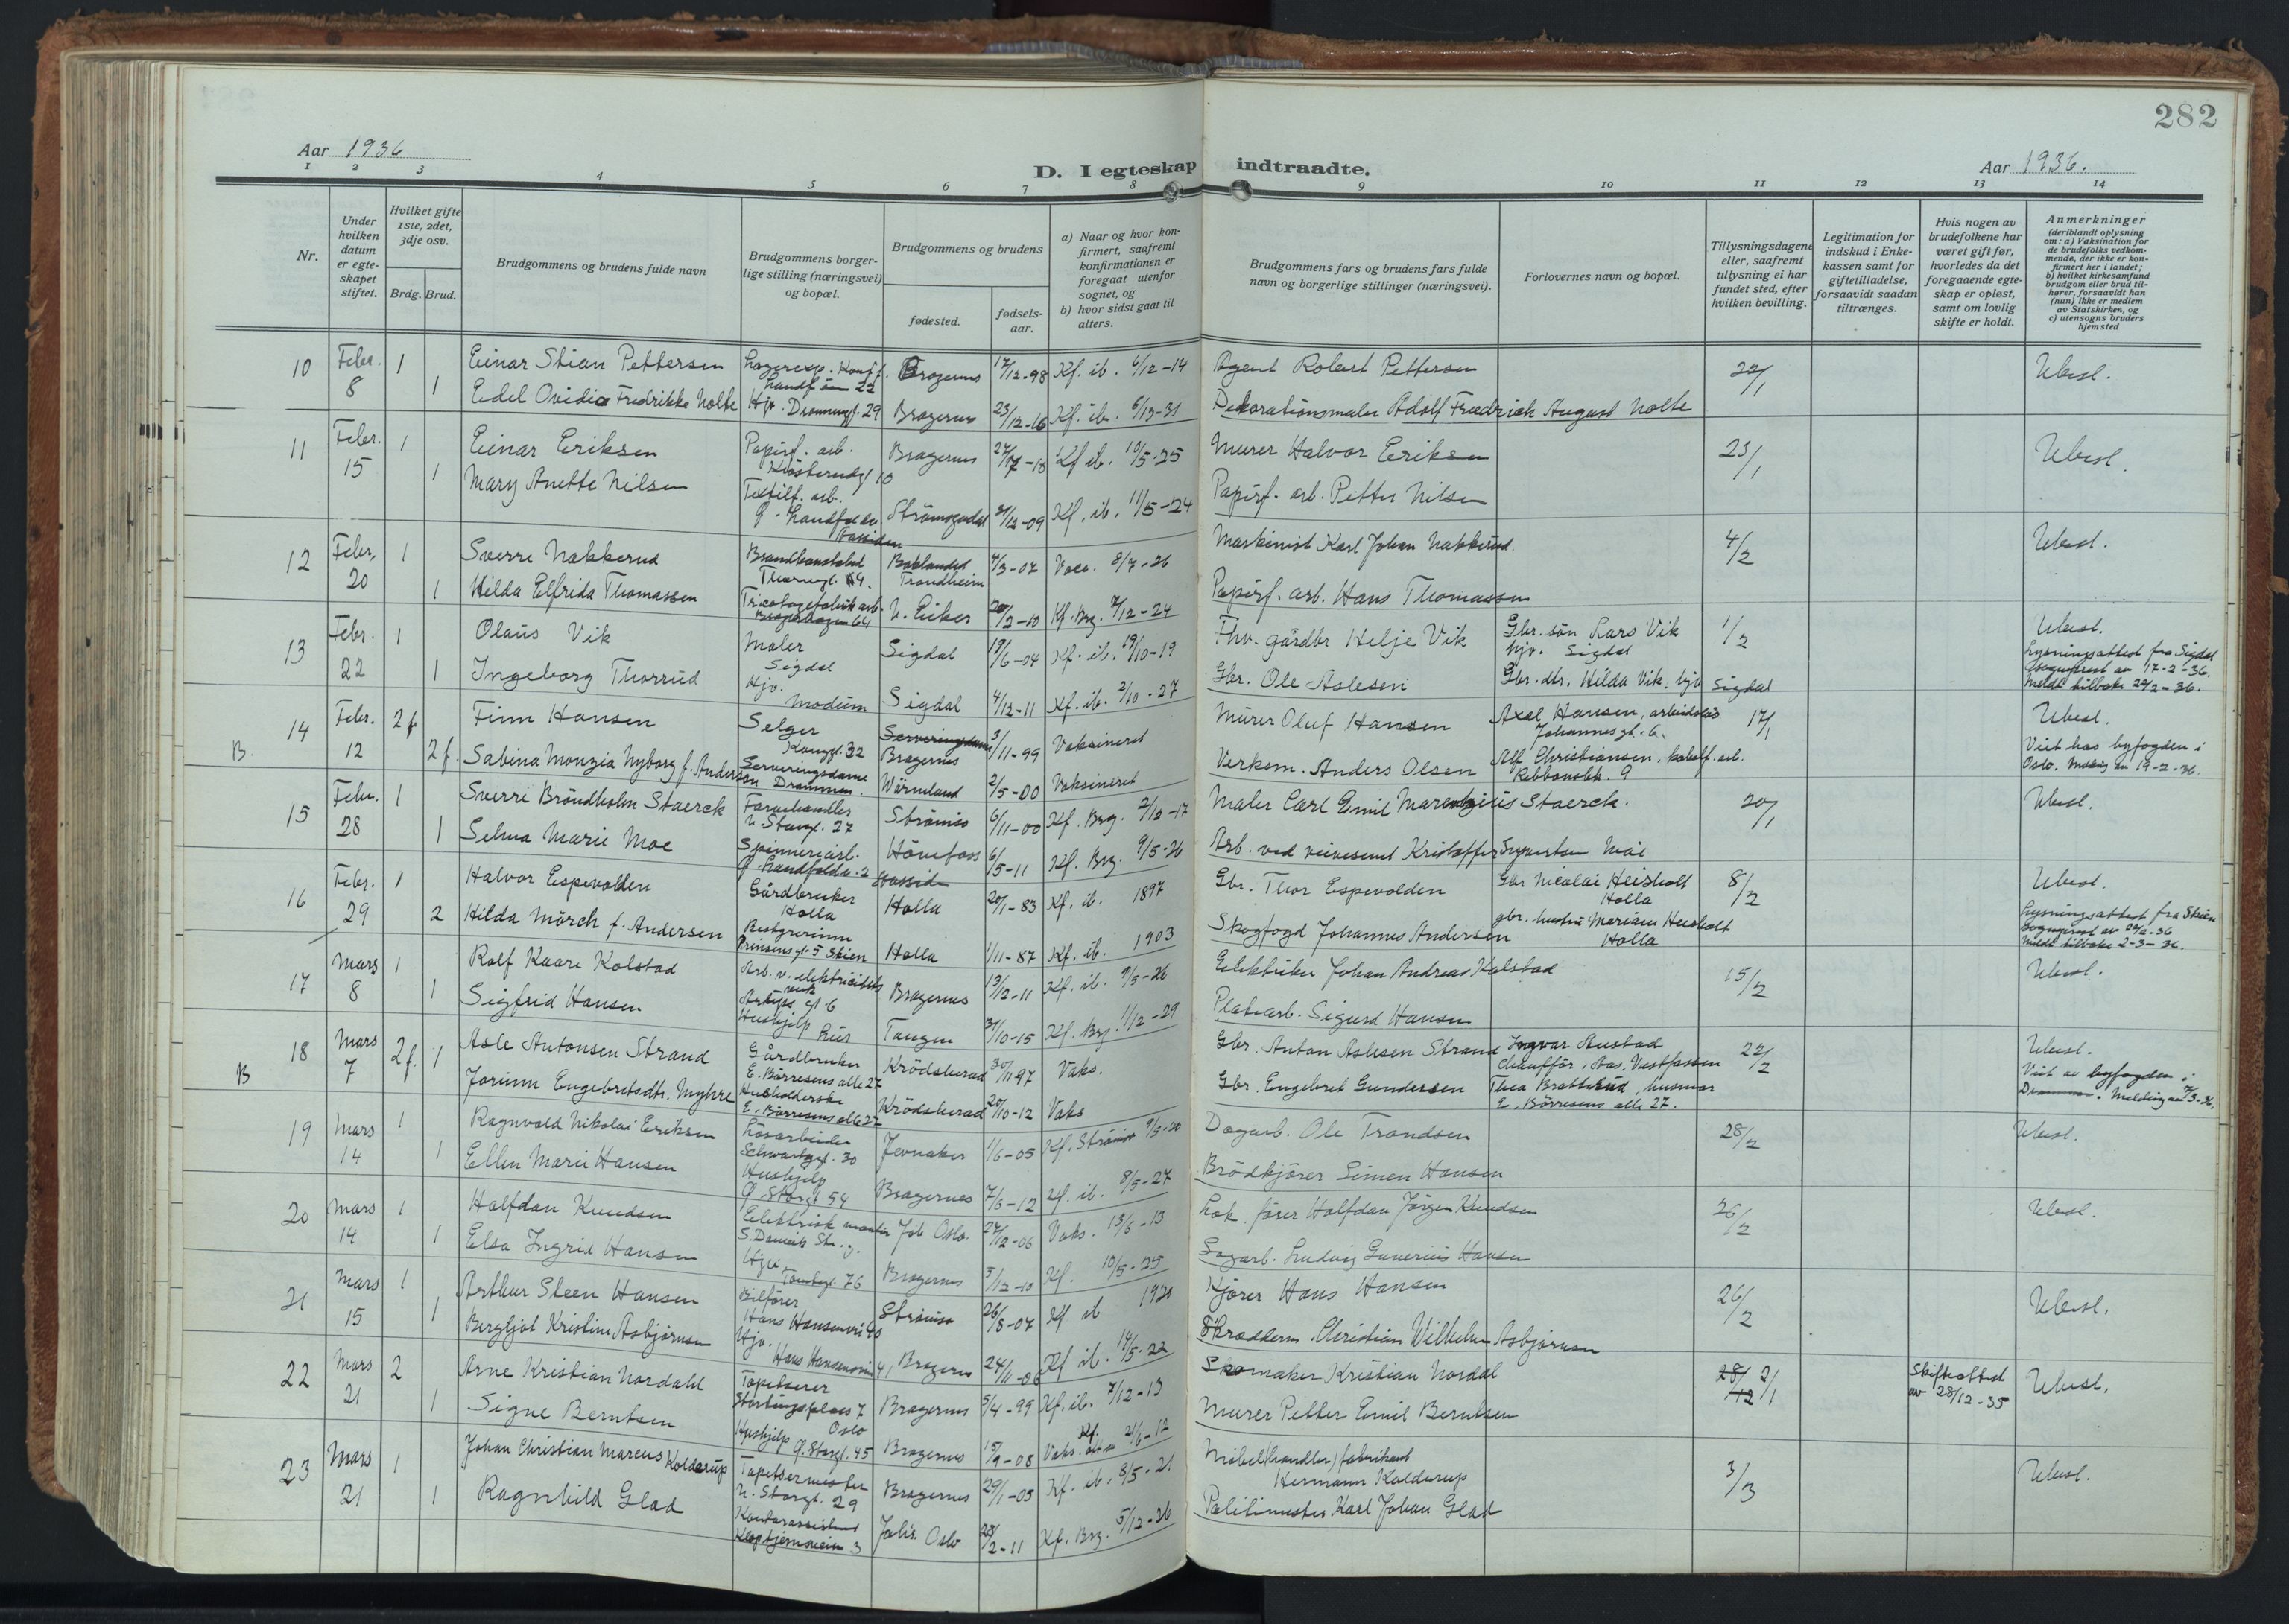 282
Aar 1936
D. I egteskap indtraadte.
Aar 1936.
1 2 3 4 5 6 7 8 9 10 11 12 13 14
Nr.
Under hvilken datum er egteskapet stiftet.
Hvilket gifte 1ste, 2det, 3dje osv.
Brdg. Brud.
Brudgommens og brudens fulde navn
Brudgommens borgerlige stilling (næringsvei) og bopæl.
Brudgommens og brudens
fødested.
fødselsaar.
a) Naar og hvor konfirmert, saafremt konfirmationen er foregaat utenfor sognet, og
b) hvor sidst gaat til alters.
Brudgommens fars og brudens fars fulde navn og borgerlige stillinger (næringsvei).
Forlovernes navn og bopæl.
Tillysningsdagene eller, saafremt tillysning ei har fundet sted, efter hvilken bevilling.
Legitimation for indskud i Enkekassen samt for giftetilladelse, forsaavidt saadan tiltrænges.
Hvis nogen av brudefolkene har været gift før, hvorledes da det foregaaende egteskap er opløst, samt om lovlig skifte er holdt.
Anmerkninger
(deriblandt oplysning om: a) Vaksination for de brudefolks vedkommende, der ikke er konfirmert her i landet;
b) hvilket kirkesamfund brudgom eller brud tilhører, forsaavidt han (hun) ikke er medlem av Statskirken, og
c) utensogns bruders hjemsted
10 Febr. 8 1 Einar Stian Pettersen Bragernes 17/12-98 Kf. ib. 6/12-14 Agent Robert Pettersen 22/1 Ubesl.
1 Edel Ovidia Fredrikke Nolte Hjv. Dronningg. 29 Bragernes 23/12-16 Kf. ib. 6/12-31 Dekorationsmaler Adolf Fredrich August Nolte
11 Febr. 15 1 Einar Eriksen Papirf. arb. Bragernes Kf. ib. 10/5-25 Murer Halvor Eriksen 23/1 Ubesl.
1 Mary Anette Nilsen Textilf. arb. Strømsgodset 31/12-09 Kf. ib. 11/5-24 Papirf. arb. Petter Nilsen
12 Febr. 20 1 Sverre Nakkerud Brandkonstabel Baklandet Trondheim 4/3-02 Vacc. 8/7-26 Maskinist Karl Johan Nakkerud. 4/2 Ubesl.
1 Hilda Elfrida Thomassen Tricotagefabrik arb. N. Eiker 20/2-10 Kf. Brg. 7/12-24 Papirf. arb. Hans Thomassen
13 Febr. 22 1 Olaus Vik Maler Sigdal Sigdal 19/6-04 Kf. ib. 19/10-19 Fhv. gårdbr Helje Vik Gbr. sön Lars Vik hjv. Sigdal 1/2 Ubesl.
Lysningsattest fra Sigdal
Sogneprest av 17-2-36.
Meldt tilbake 22/2-36.
1 Ingeborg Thorrud Hjv. Modum Sigdal 4/12-11 Kf. ib. 2/10-27 Gbr. Ole Aslesen Gbr. dtr. Hilda Vik. hjv Sigdal
B. 14 Febr. 12 2 f Finn Hansen Selger Kongsg. 32 Bragernes 3/11-99 Vaksineret Murer Oluf Hansen Axel Hansen, arbeidsløs Johannesgt. 6. 17/1 Ubesl.
Viet hos byfogden i
Oslo. Melding av 19-2-36.
2 f. Sabina Monzia Nyborg f. Anderson Serveringsdame Drammen. Wärmeland 2/5-00 Vaksineret Verksm. Anders Olsen Alf Christiansen, kabelf. arb.
15 Febr. 28 1 Sverre Bröndholm Staerck Farvehandler N. Storgt. 27 Strömsø 6/11-00 Kf. Brg. 2/12-17 Maler Carl Emil Marentzius Staerck. 20/1 Ubesl.
1 Selma Marie Moe Spinneriarb. Hönefoss 6/5-11 Kf. Brg. 9/5-26 Arb. ved veivesenet Kristoffer Syvertsen Moe
16 Febr. 29 1 Halvor Espevolden Gårdbruker Holla Holla 20/1-83 Kf. ib. 1897 Gbr. Thor Espevolden Gbr Nicolai Heisholt Holla 8/2 Ubesl.
Lysningsattest fra Skien
Sogneprest av 22/2-36
Meldt tilbake 2-3-36.
2 Hilda Mörch f. Andersen Prinsensgt. 5 Skien Holla 1/11-87 Kf. ib. 1903 Skogfogd Johannes Andersen gbr. hustru Mariane Heisholt Holla
17 Mars 8 1 Rolf Kaare Kolstad Arb. v. elektricitetsverk Bragernes 13/12-11 Kf. ib. 9/5-26 Elektriker Johan Andreas Kolstad 15/2 Ubesl.
1 Sigfrid Hansen Hushjelp Tangen 31/10-15 Kf. Brg. 1/12-29 Platearb. Sigurd Hansen
B 18 Mars 7 2 f. Asle Antonsen Strand Gårdbruker E. Börresens alle 27 Krödsherad 30/11 97 Vaks. Gbr. Anton Aslesen Strand Ingvar Austad chauffør, Aas, Vestfossen 22/2 Ubesl.
Viet av byfogden i
Drammen. Melding av 7/3-36.
1 Jorunn Engebretsdtr. Myhre Husholderske E. Börresens alle 27 Krödsherad 20/10-12 Vaks Gbr. Engebret Gundersen Thea Bratterud, husmor E. Börresens alle 27.
19 Mars 14 1 Ragnvald Nikolai Eriksen Løsarbeider Schwartzgt. 30 Jevnaker 1/6-05 Kf. Strömsø 9/5-20 Dagarb. Ole Trondsen 28/2 Ubesl.
1 Ellen Marie Hansen Hushjelp Ø. Storgt 54 Bragernes 7/6-12 Kf. ib. 8/5-27 Brödkjører Simen Hansen
20 Mars 14 1 Halfdan Knudsen Elektrisk montør Jab Oslo. 24/12-06 Vaks. 13/6-13 Lok. fører Halfdan Jörgen Knudsen 26/2 Ubesl.
1 Elsa Ingrid Hansen Hjv. Tomtegt. 76 Bragernes 5/12-10 Kf. 10/5-25 Sagarb. Ludvig Gunerius Hansen
21 Mars 15 1 Arthur Steen Hansen Bilfører Hans Hansensvei 40 Strømsø 26/8-07 Kf ib 1920 Kjører Hans Hansen 26/2 Ubesl.
1 Bergljot Kristine Asbjörnsen Hjv. Hans Hansensvei 41 Bragernes 24/11-06 Kf ib. 14/5-22 Skræddern. Christian Wilhelm Asbjörnsen
22 Mars 21 2 Arne Kristian Nordahl Tapetserer Stortingsplass 7 Oslo Bragernes 5/4-99 Kf. ib. 7/12-13 Skomaker Kristian Nordal 28/12 2/1 Skifteattest av 28/12-35 Ubesl.
1 Signe Berntsen Hushjelp Ø. Storgt. 45 Bragernes 15/9-08 Vaks. Murer Petter Emil Berntsen
23 Mars 21 1 Johan Christian Marcus Kolderup Tapetserermester N. Storgt. 29 Bragernes 29/1-05 Kf. ib. 8/5-21 Möbel(handler) fabrikant Hermann Kolderup 3/3 Ubesl.
1 Ragnhild Glad Kontorassistent Kloptjernsveien 3 Oslo 28/2-11 Kf. Brg. 5/12-26 Politimester Karl Johan Glad